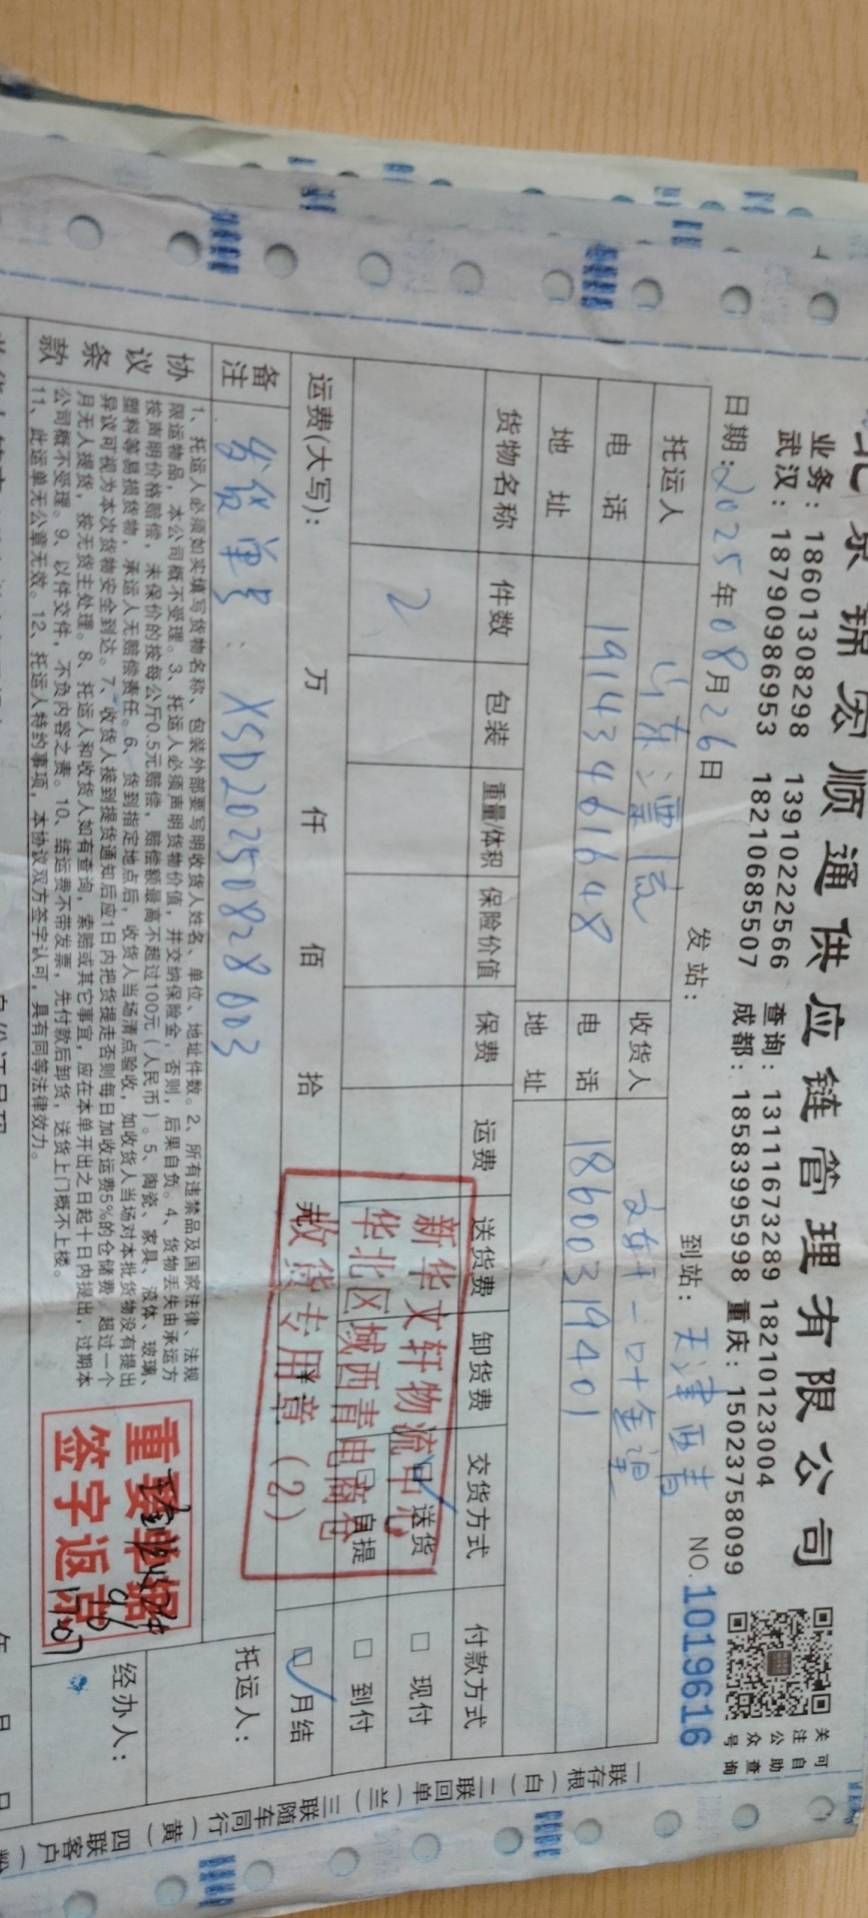 北京锦宏顺通供应链管理有限公司
业务：18601308298 13910222566 查询：13111673289 18210123004
武汉：18790986953 18210685507 成都：18583995998 重庆：15023758099
关注公众号
可自助查询
日期：2025年08月26日 发站： 到站：天津西青 NO.1019616
托运人 山东 收货人 文轩一叶全望
电话 19143461648 电话 18600319401
地址 地址
货物名称 件数 包装 重量/体积 保险价值 保费 运费 送货费 卸货费 交货方式 付款方式
2 送货 □ 现付
□ 自提 □ 到付
运费(大写)： 万 仟 佰 拾 元 月结
新华文轩物流中心
华北区域西青电商仓
收货专用章（2）
备注 发货单号：XSD20250828003
托运人：
协议条款
1、托运人必须如实填写货物名称、包装外部要写明收货人姓名、单位、地址件数。2、所有违禁品及国家法律、法规
限运物品，本公司概不受理。3、托运人必须声明货物价值，并交纳保险金，否则，后果自负。4、货物丢失由承运方
按声明价格赔偿，未保价的按每公斤0.5元赔偿，赔偿额最高不超过100元（人民币）。5、陶瓷、家具、液体、玻璃、
塑料等易损货物，承运人无赔偿责任。6、货到指定地点后，收货人当场清点验收，如收货人当场对本批货物没有提出
异议可视为本次货物安全到达。7、收货人接到提货通知后应1日内把货提走否则每日加收运费5%的仓储费，超过一个
月无人提货，按无货主处理。8、托运人和收货人如有查询，索赔或其它事宜，应在本单开出之日起十日内提出，过期本
公司概不受理。9、以件交件，不负内容之责。10、结运费不带发票，先付款后卸货，送货上门概不上楼。
11、此运单无公章无效。12、托运人特约事项，本协议双方签字认可，具有同等法律效力。
重要单据
签字返京
经办人：
一联存根（白）二联回单（兰）三联随车同行（黄）四联客户（粉
身份证号码
年 月 日